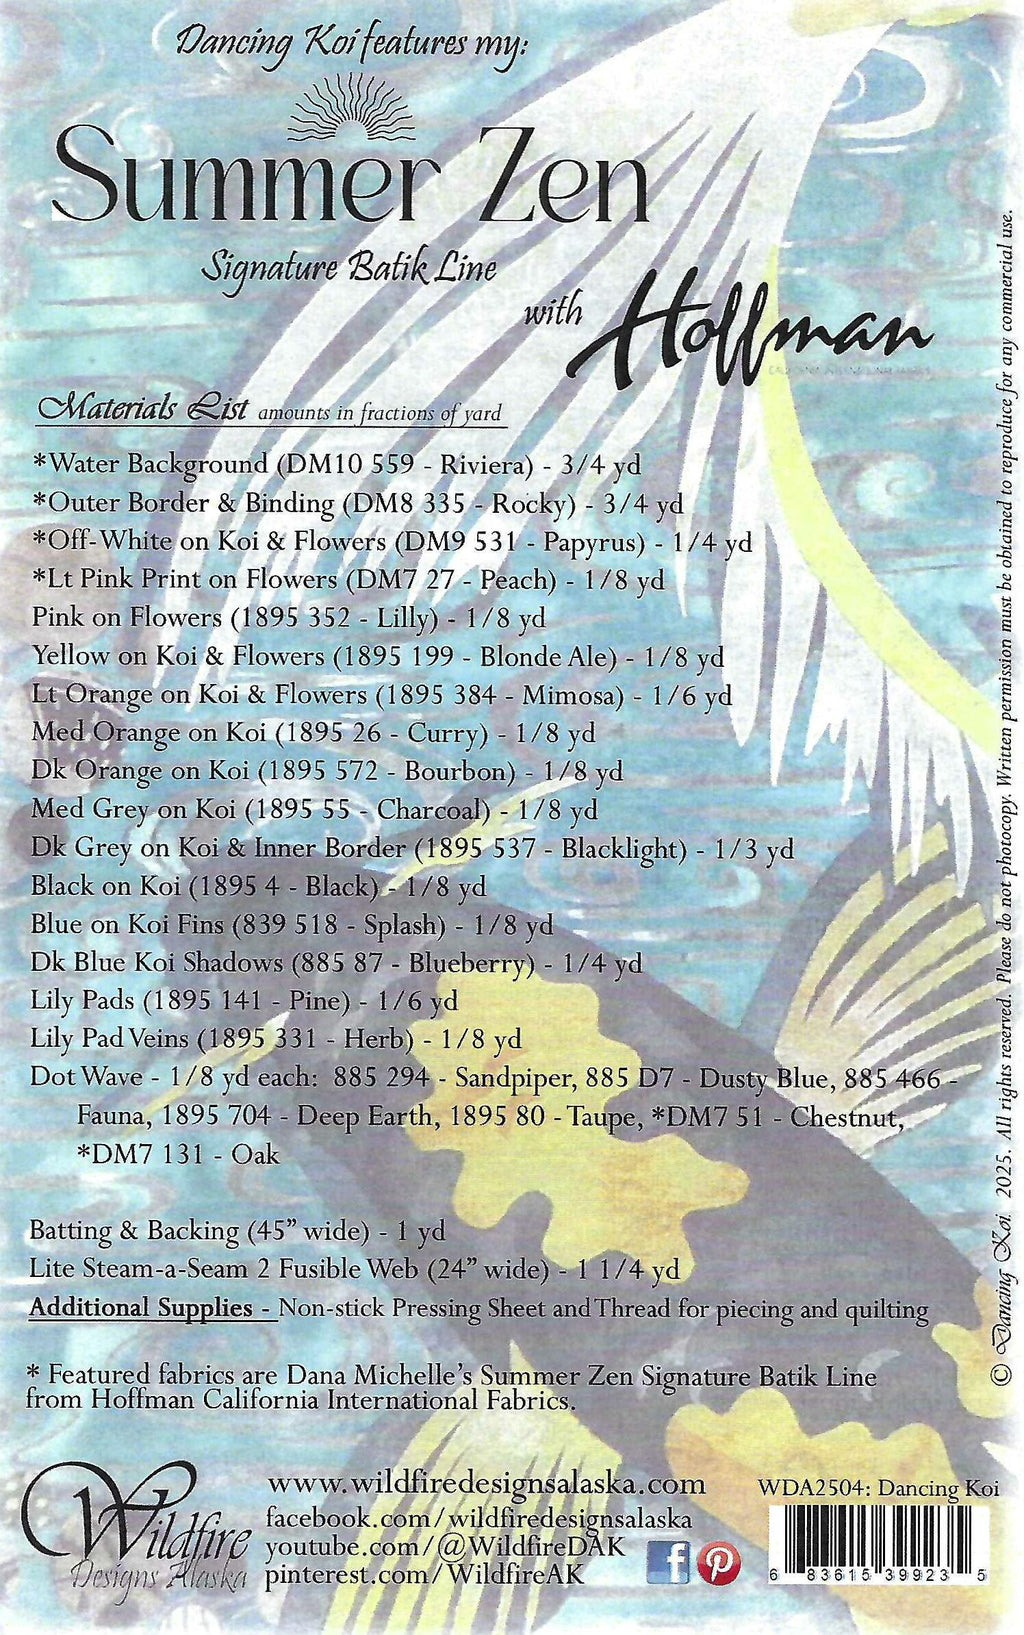 Dancing Koi features my:
Summer Zen
Signature Batik Line
with Hoffman
CALIFORNIA INTERNATIONAL FABRICS
Materials List amounts in fractions of yard
*Water Background (DM10 559 - Riviera) - 3/4 yd
*Outer Border & Binding (DM8 335 - Rocky) - 3/4 yd
*Off-White on Koi & Flowers (DM9 531 - Papyrus) - 1/4 yd
*Lt Pink Print on Flowers (DM7 27 - Peach) - 1/8 yd
Pink on Flowers (1895 352 - Lilly) - 1/8 yd
Yellow on Koi & Flowers (1895 199 - Blonde Ale) - 1/8 yd
Lt Orange on Koi & Flowers (1895 384 - Mimosa) - 1/6 yd
Med Orange on Koi (1895 26 - Curry) - 1/8 yd
Dk Orange on Koi (1895 572 - Bourbon) - 1/8 yd
Med Grey on Koi (1895 55 - Charcoal) - 1/8 yd
Dk Grey on Koi & Inner Border (1895 537 - Blacklight) - 1/3 yd
Black on Koi (1895 4 - Black) - 1/8 yd
Blue on Koi Fins (839 518 - Splash) - 1/8 yd
Dk Blue Koi Shadows (885 87 - Blueberry) - 1/4 yd
Lily Pads (1895 141 - Pine) - 1/6 yd
Lily Pad Veins (1895 331 - Herb) - 1/8 yd
Dot Wave - 1/8 yd each: 885 294 - Sandpiper, 885 D7 - Dusty Blue, 885 466 -
Fauna, 1895 704 - Deep Earth, 1895 80 - Taupe, *DM7 51 - Chestnut,
*DM7 131 - Oak
Batting & Backing (45” wide) - 1 yd
Lite Steam-a-Seam 2 Fusible Web (24” wide) - 1 1/4 yd
Additional Supplies - Non-stick Pressing Sheet and Thread for piecing and quilting
* Featured fabrics are Dana Michelle’s Summer Zen Signature Batik Line
from Hoffman California International Fabrics.
Wildfire
Designs Alaska
www.wildfiredesignsalaska.com
facebook.com/wildfiredesignsalaska
youtube.com/@WildfireDAK
pinterest.com/WildfireAK
WDA2504: Dancing Koi
6 83615 39923 5
© Dancing Koi. 2025. All rights reserved. Please do not photocopy. Written permission must be obtained to reproduce for any commercial use.